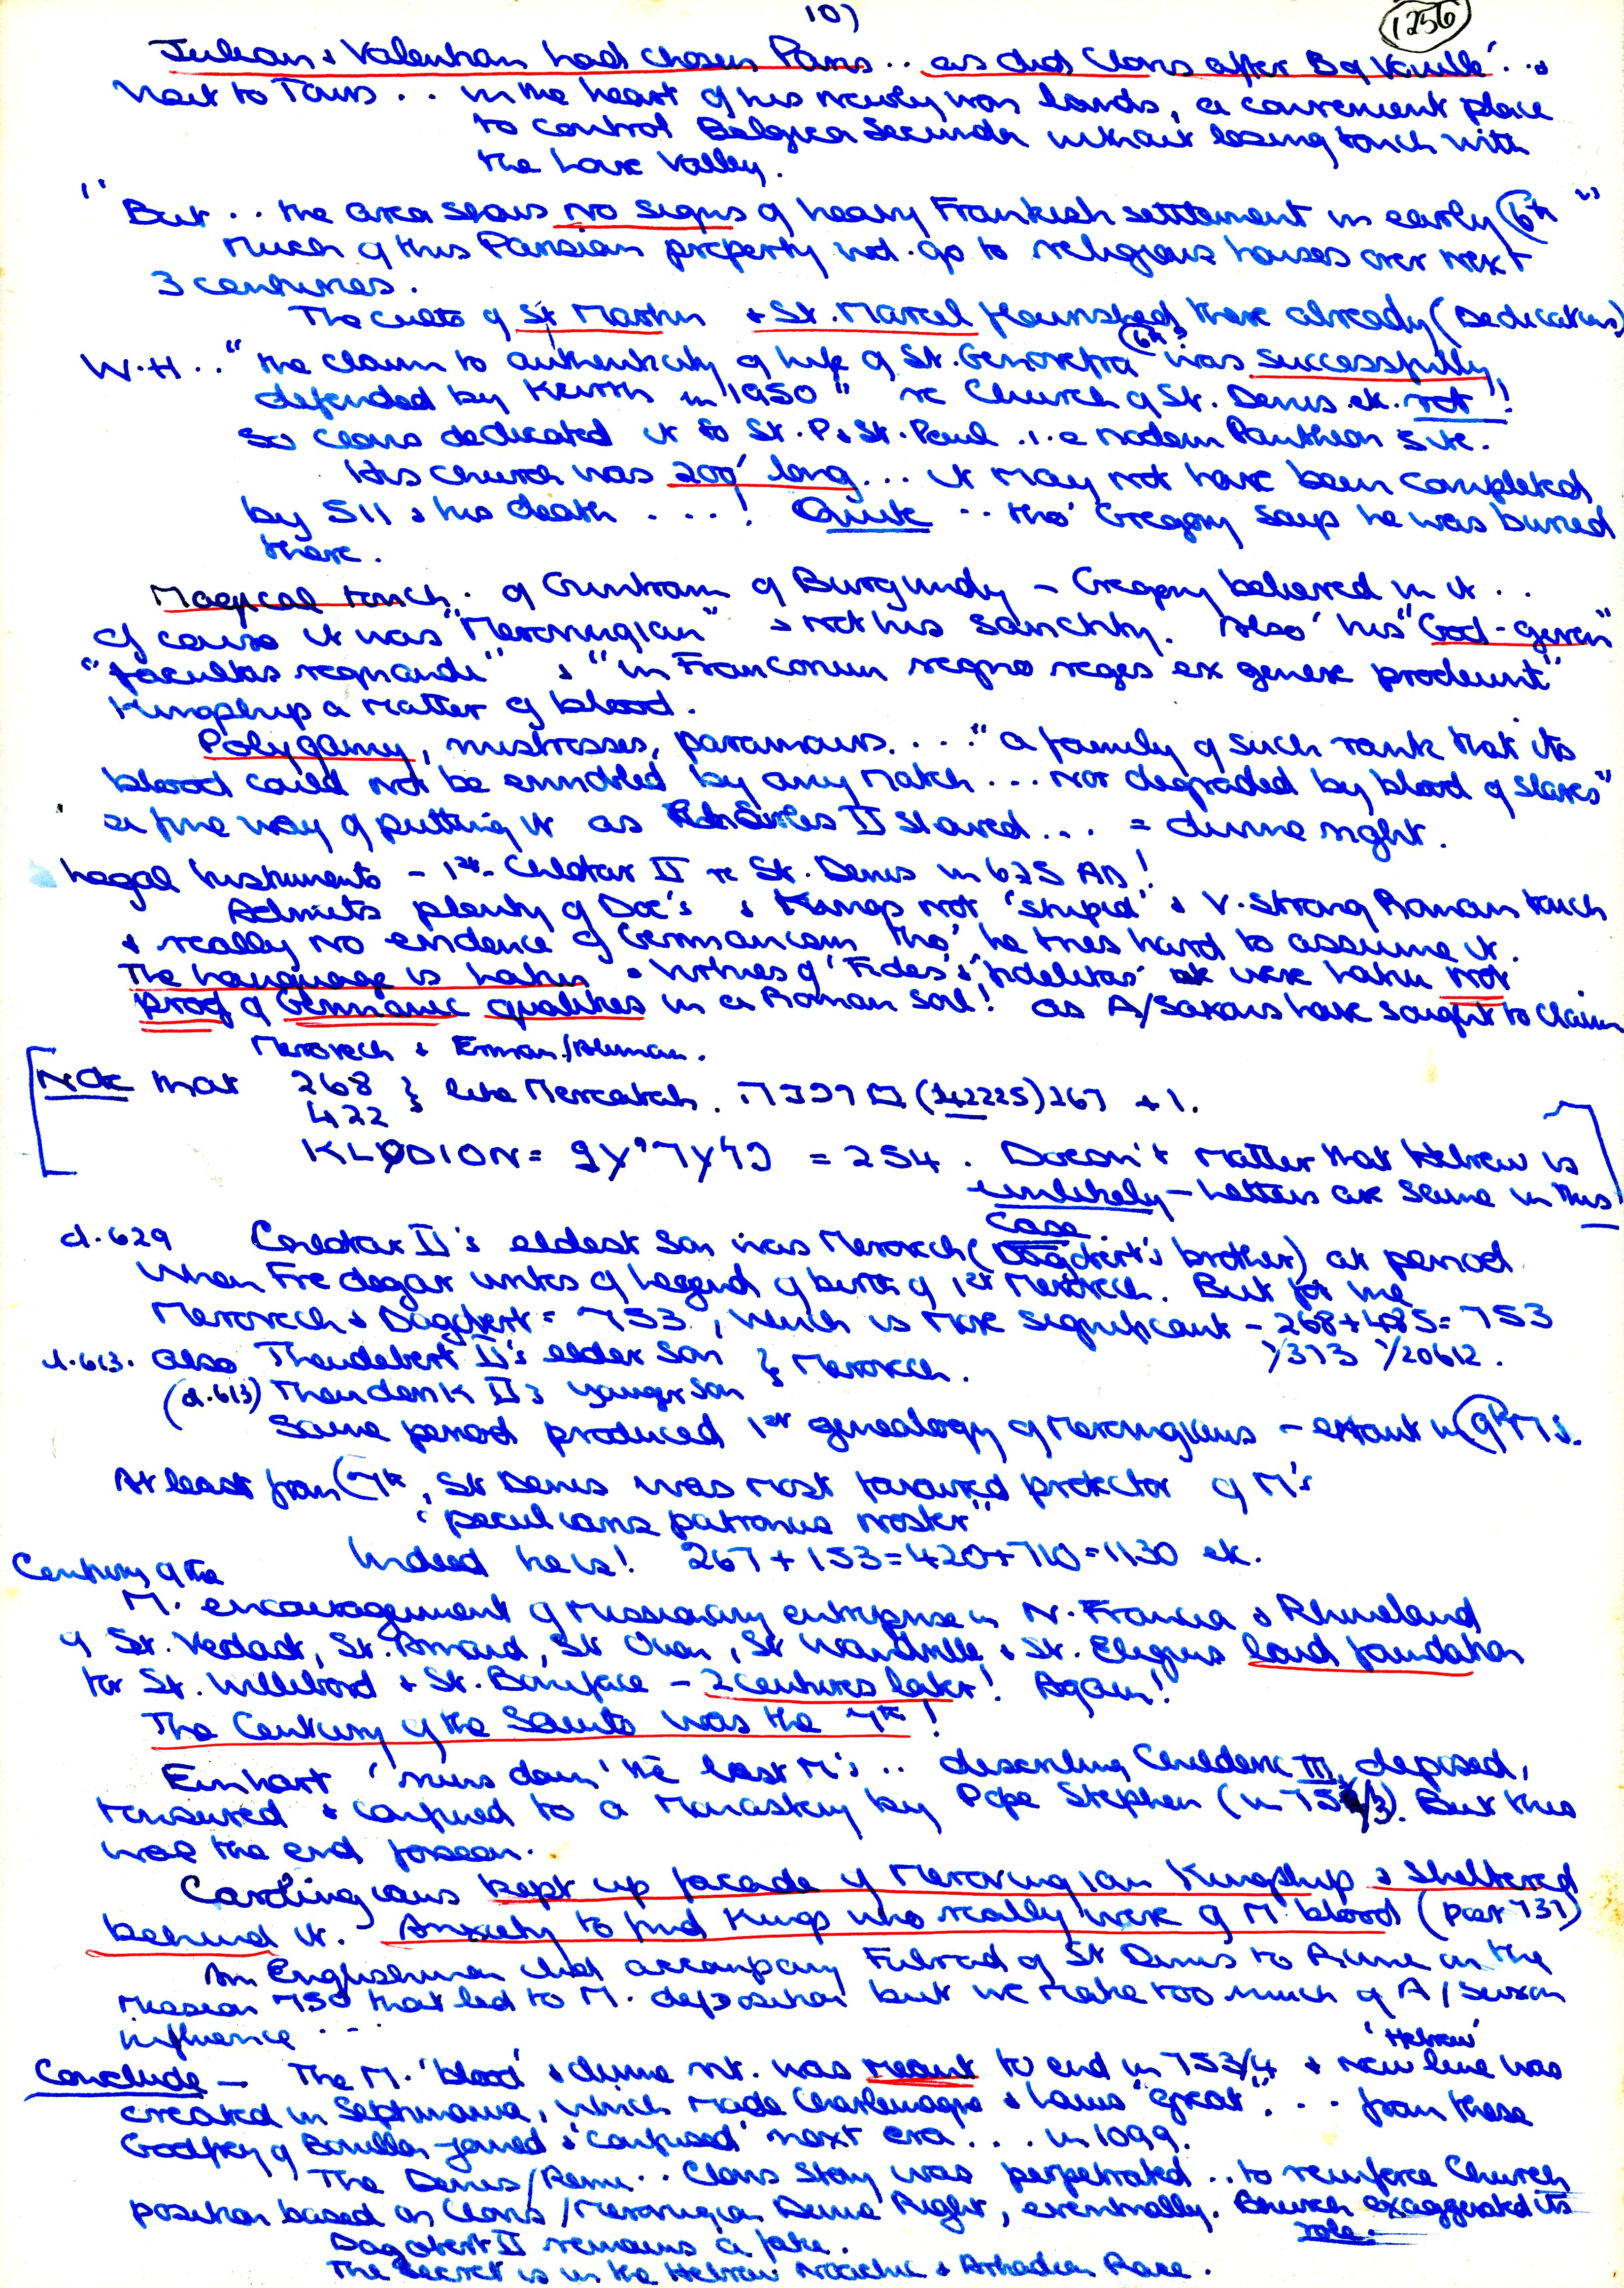 10)
1256
Julian & Valentian had chosen Paris .. as did Clovis after B of Vouillé .. &
next to Tours .. in the heart of his newly won lands, a convenient place
to control Belgica Secunda without losing touch with
the Loire Valley.
"But .. the area shows no signs of heavy Frankish settlement in early 6th"
Much of this Parisian property wd. go to religious houses over next
3 centuries.
The cults of St Martin & St. Marcel flourished there already (Dedications)
W-H .. "the claim to authenticity of life of St. Genovefa (6th) was successfully
defended by Kurth in 1950" re Church of St. Denis etc. not!!
So Clovis dedicated it to St. P & St. Paul i.e modern Pantheon site.
His church was 200' long ... it may not have been completed
by 511 & his death ...! Quite .. tho' Gregory says he was buried
there.
Magical touch. of Guntram of Burgundy – Gregory believed in it ..
of course it was "Merovingian" & not his sanctity. Also his "God-given"
"facultas regnandi" & "in Francorum regno reges ex genere prodeunt"
Kingship a matter of blood.
Polygamy, mistresses, paramours. ... "a family of such rank that its
blood could not be ennobled by any match ... nor degraded by blood of slaves"
a fine way of putting it as Charles II showed ... = divine right.
Legal Instruments – 1st Clotar II re St. Denis in 625 AD!
Admits plenty of Doc's & Kings not 'stupid' & v. strong Roman touch
& really no evidence of Germanism tho' he tries hard to assume it.
The language is Latin & virtues of 'Fides' & 'fidelitas' were Latin not
proof of Germanic qualities in a Roman soil! as A/Saxons have sought to claim
Merovech &
Note that 268 } like
422
(42225) 267 + 1.
KLODION = = 254. Doesn't matter that Hebrew is
unlikely – letters are same in this
case.
d. 629 Clotar II's eldest son was Merovech (Dagobert's brother) at period
when Fredegar writes of legend of birth of 1st Merovech. But for me
Merovech & Dagobert = 753, which is more significant – 268 + 485 = 753
d. 613. also Theudebert II's elder son } Merovech.
(d. 613) Theuderik II's younger son
Same period produced 1st genealogy of Merovingians – extant in 9th Ms.
At least from 7th, St Denis was most favoured protector of M's
'peculiaris patronus noster"
Indeed he is! 267 + 153 = 420 + 710 = 1130 etc.
Century of the
M. encouragement of missionary enterprise in N. Francia & Rhineland
of St. Vedast, St. Amand, St Ouen, St Wandrille & St. Eligius laid foundation
for St. Willibrord & St. Boniface – 2 centuries later! Again!
The Century of the Saints was the 7th!
Einhart 'runs down' the last M's .. describing Childeric III, deposed,
tonsured & confined to a monastery by Pope Stephen (in 75 /3). But this
was the end foreseen.
Carolingians kept up facade of Merovingian Kingship & sheltered
behind it. Anxiety to find Kings who really were of M. blood (post 737)
An Englishman did accompany Fulrad of St Denis to Rome on the
mission 750 that led to M. deposition but we make too much of A/Saxon
influence ...
'Hebrew'
Conclude – The M. 'blood' & divine rt. was meant to end in 753/4 & new line was
created in Septimania, which made Charlemagne & Louis "great". ... from these
Godfrey of Bouillon joined & 'confused' next era ... in 1099.
The Denis/Remi .. Clovis story was perpetrated .. to reinforce Church
position based on Clovis/Merovingian Divine Right, eventually. Church exaggerated its
role.
Dagobert II remains a fake.
The Secret is in the Hebrew & Arkadian Race.